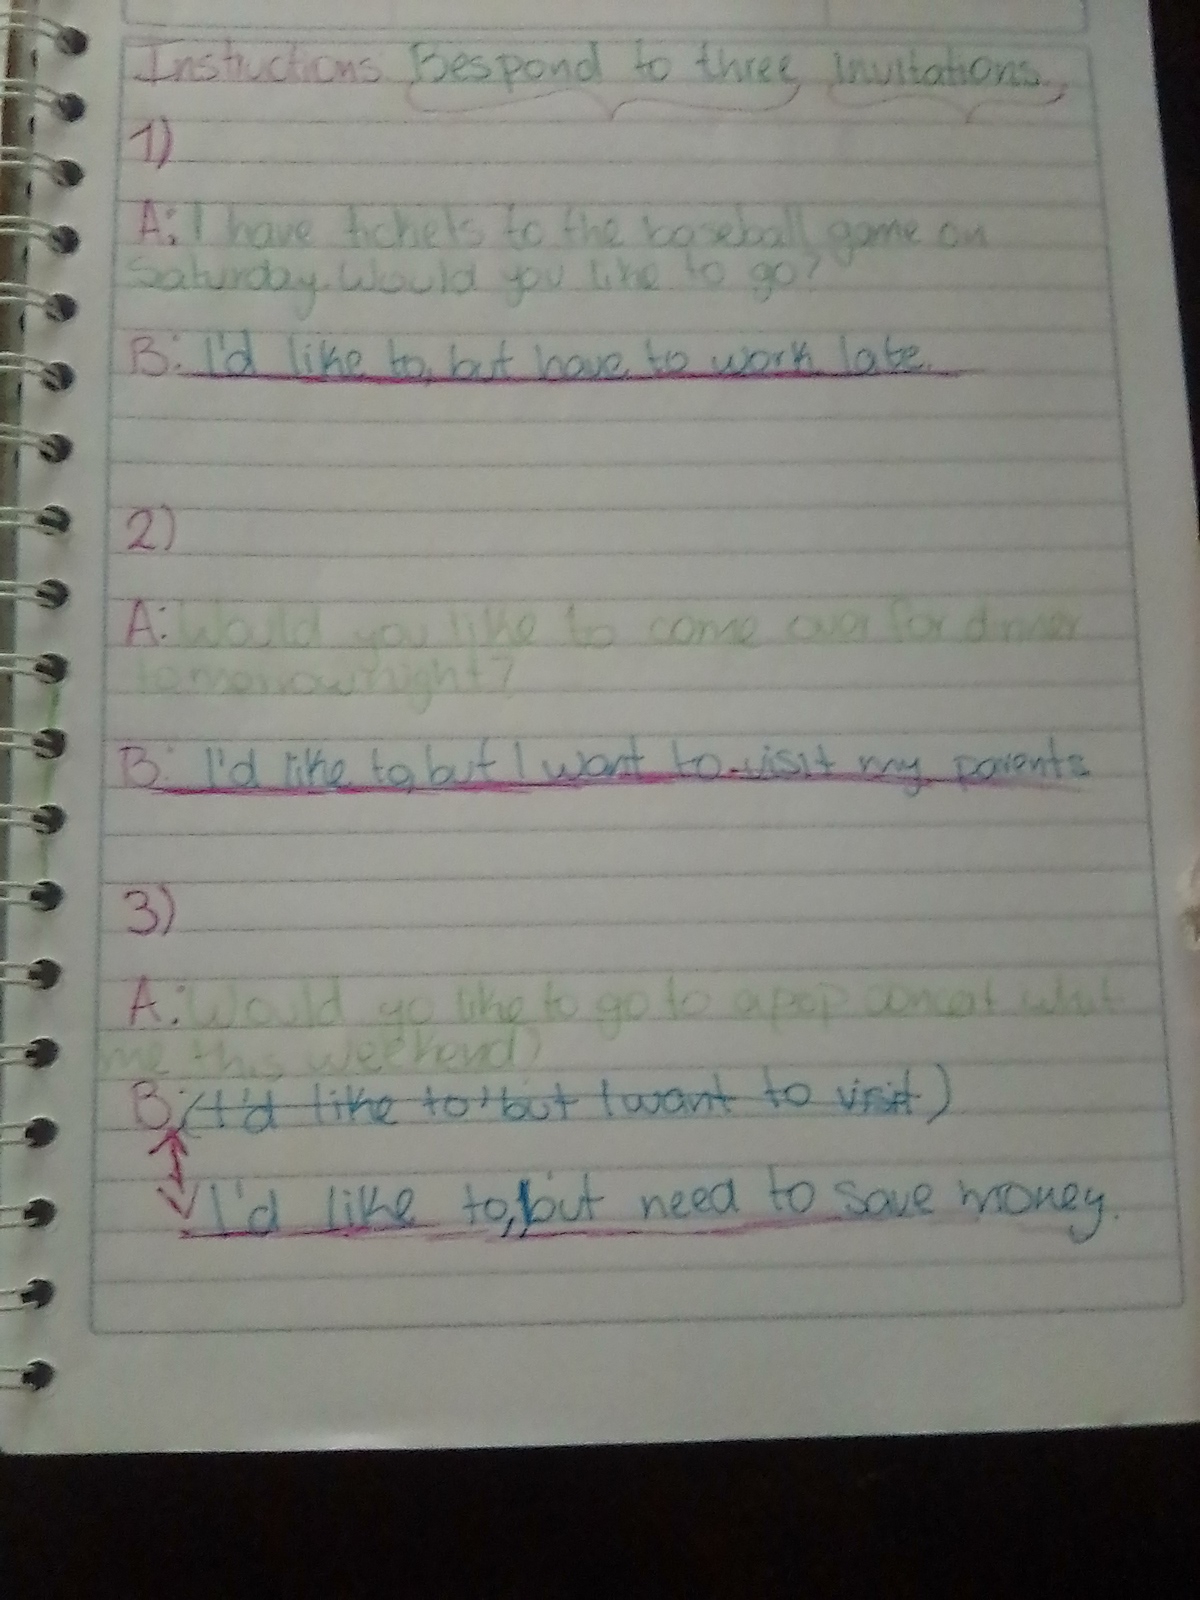 Instructions Respond to three invitations.
1)
A: I have tickets to the baseball game on
Saturday. Would you like to go?
B: I'd like to, but have to work late.
2)
A: Would you like to come over for dinner
tomorrow night?
B: I'd like to, but I want to visit my parents
3)
A: Would yo like to go to a pop concert whit
me this weekend?
B: (I'd like to but I want to visit)
I'd like to, but need to save money.